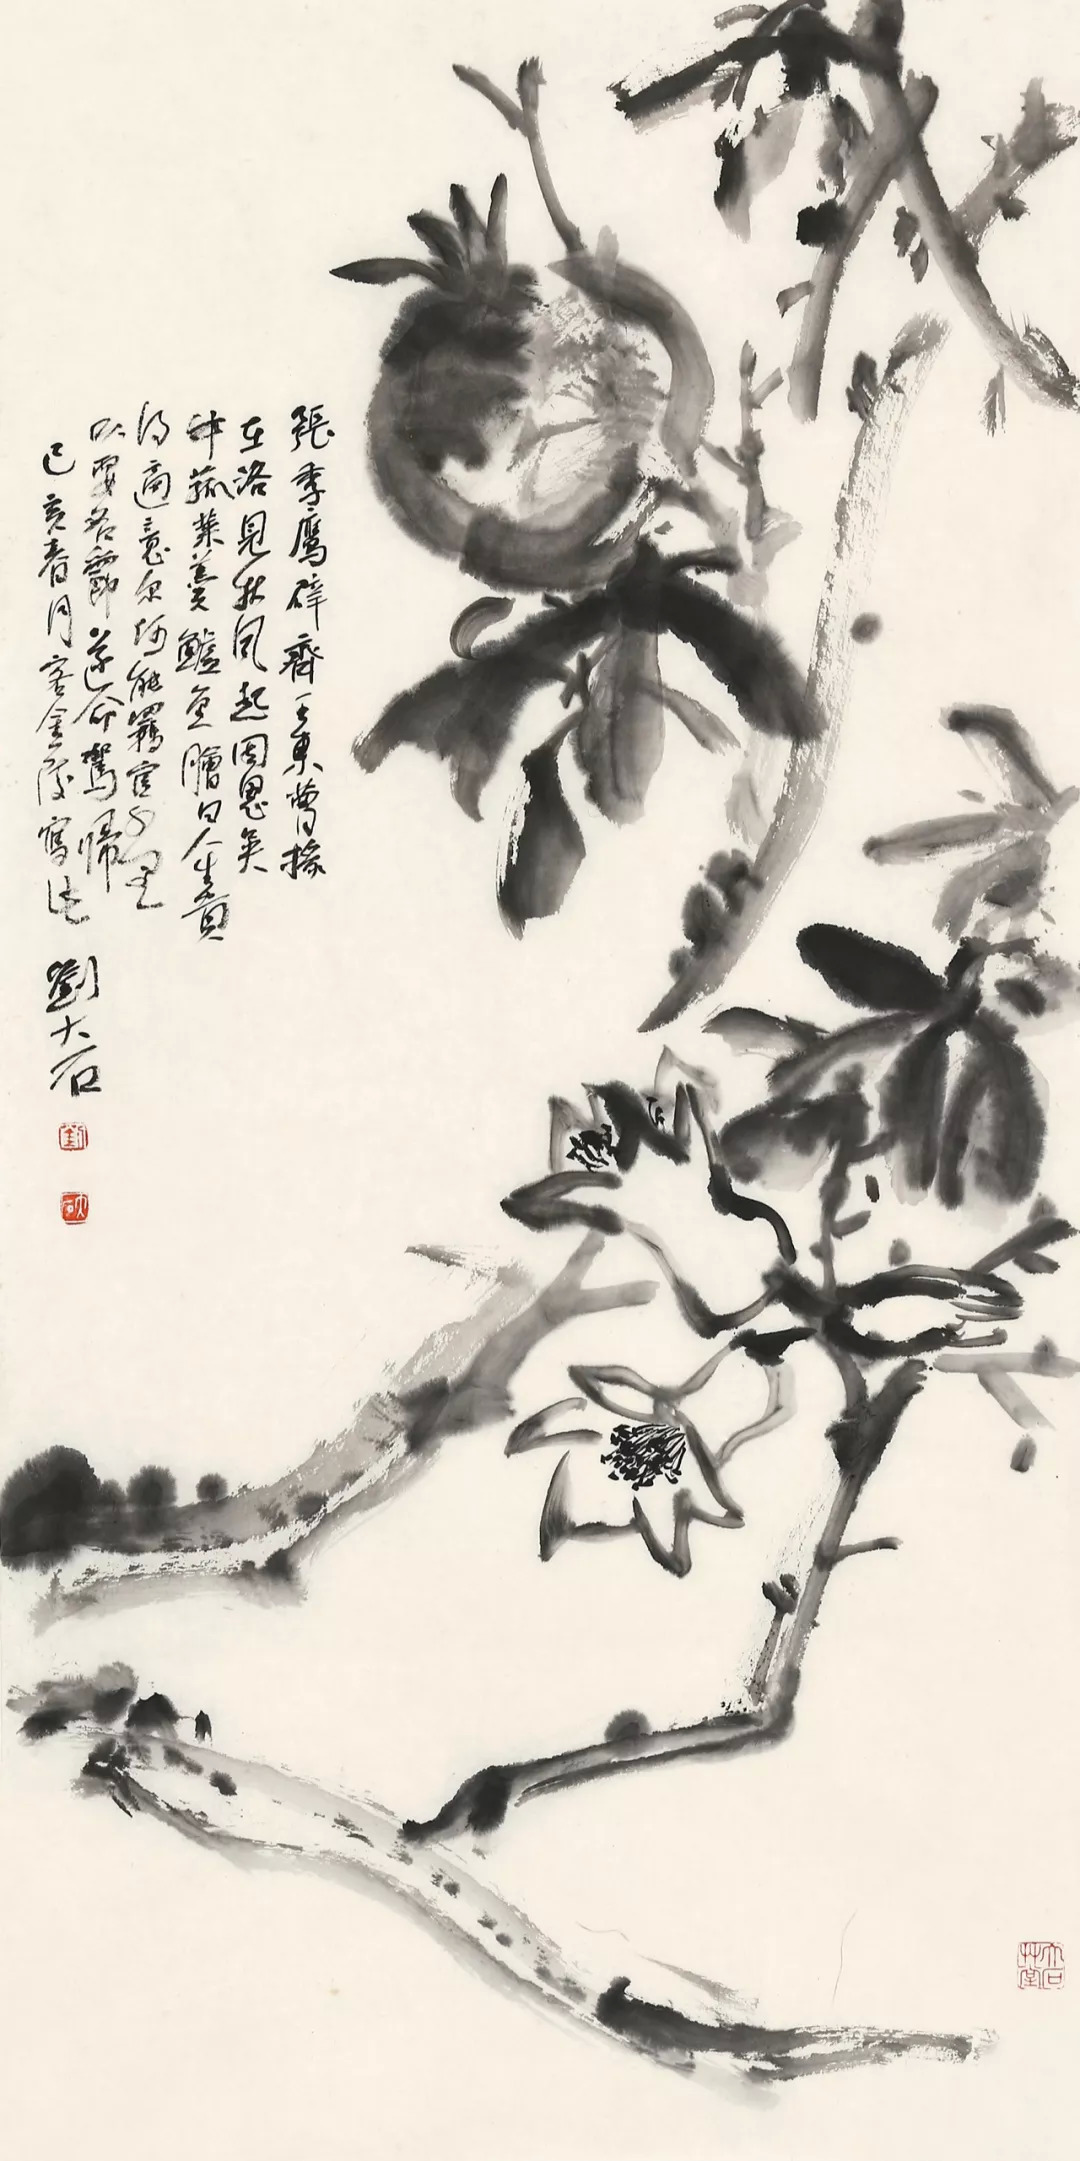 張季鷹辟齊王東曹掾
在洛見秋風起因思吳
中菰菜羹鱸魚膾曰人生貴
得適意尔何能羈宦千里
以要名爵遂命駕歸
己亥春月客金陵寫此 劉大石
劉
大石艸堂